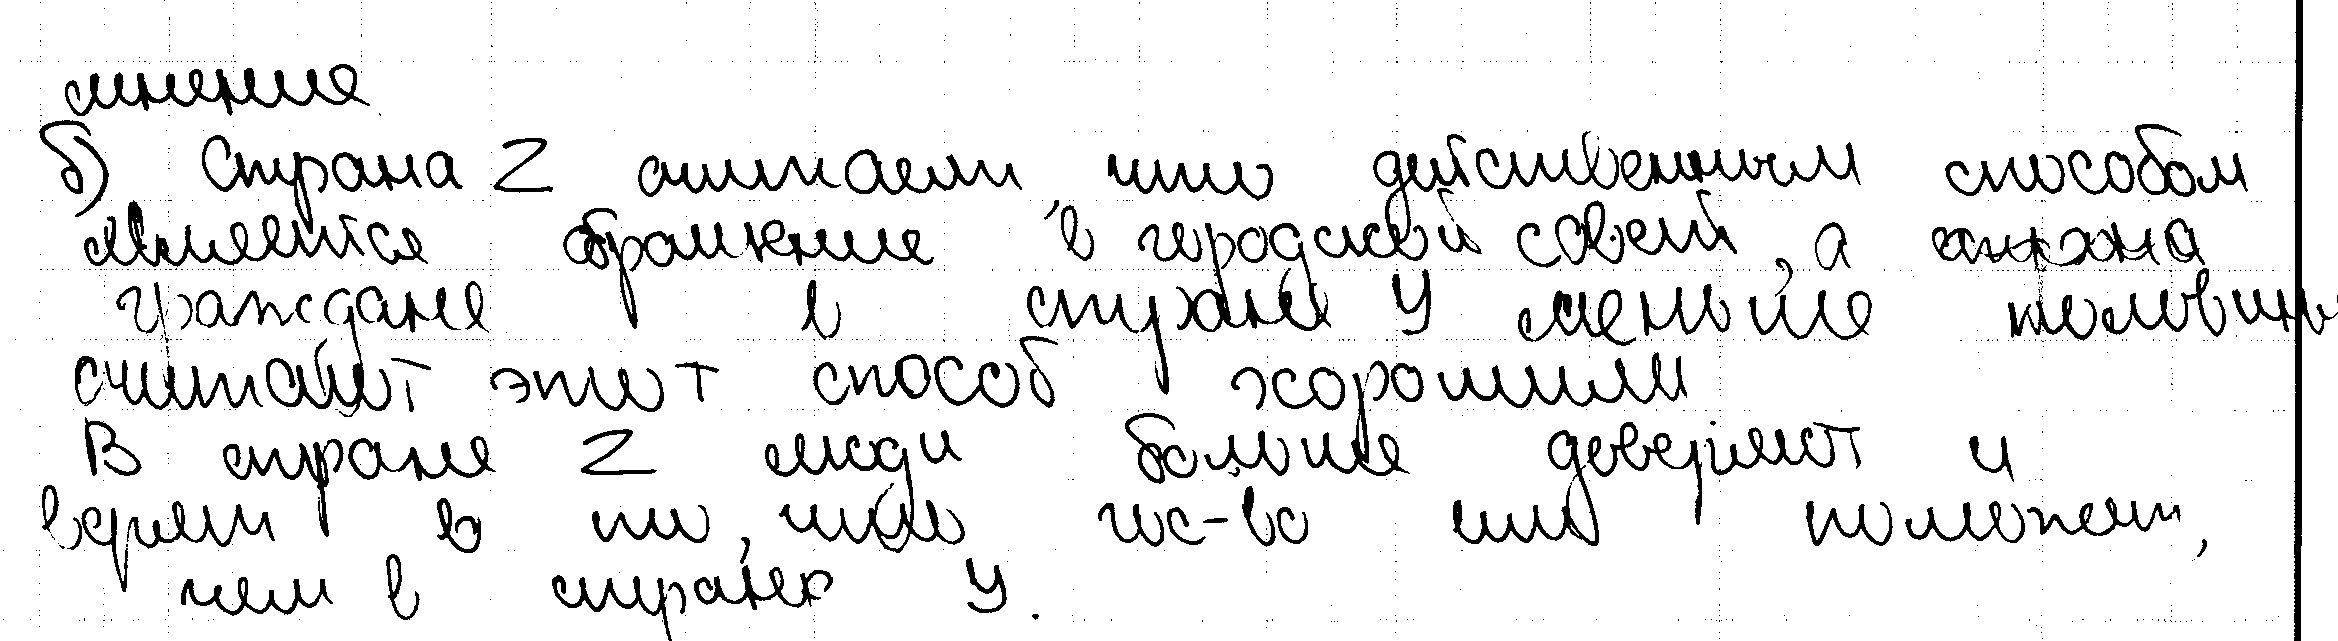 мнение
б) Страна Z считает, что действенным способом
является обращение в городской совет, а страна
граждане в стране У меньше половины
считают этот способ хорошим
В стране Z люди больше доверяют и
верят в то, что гос-во им поможет,
чем в стране У.